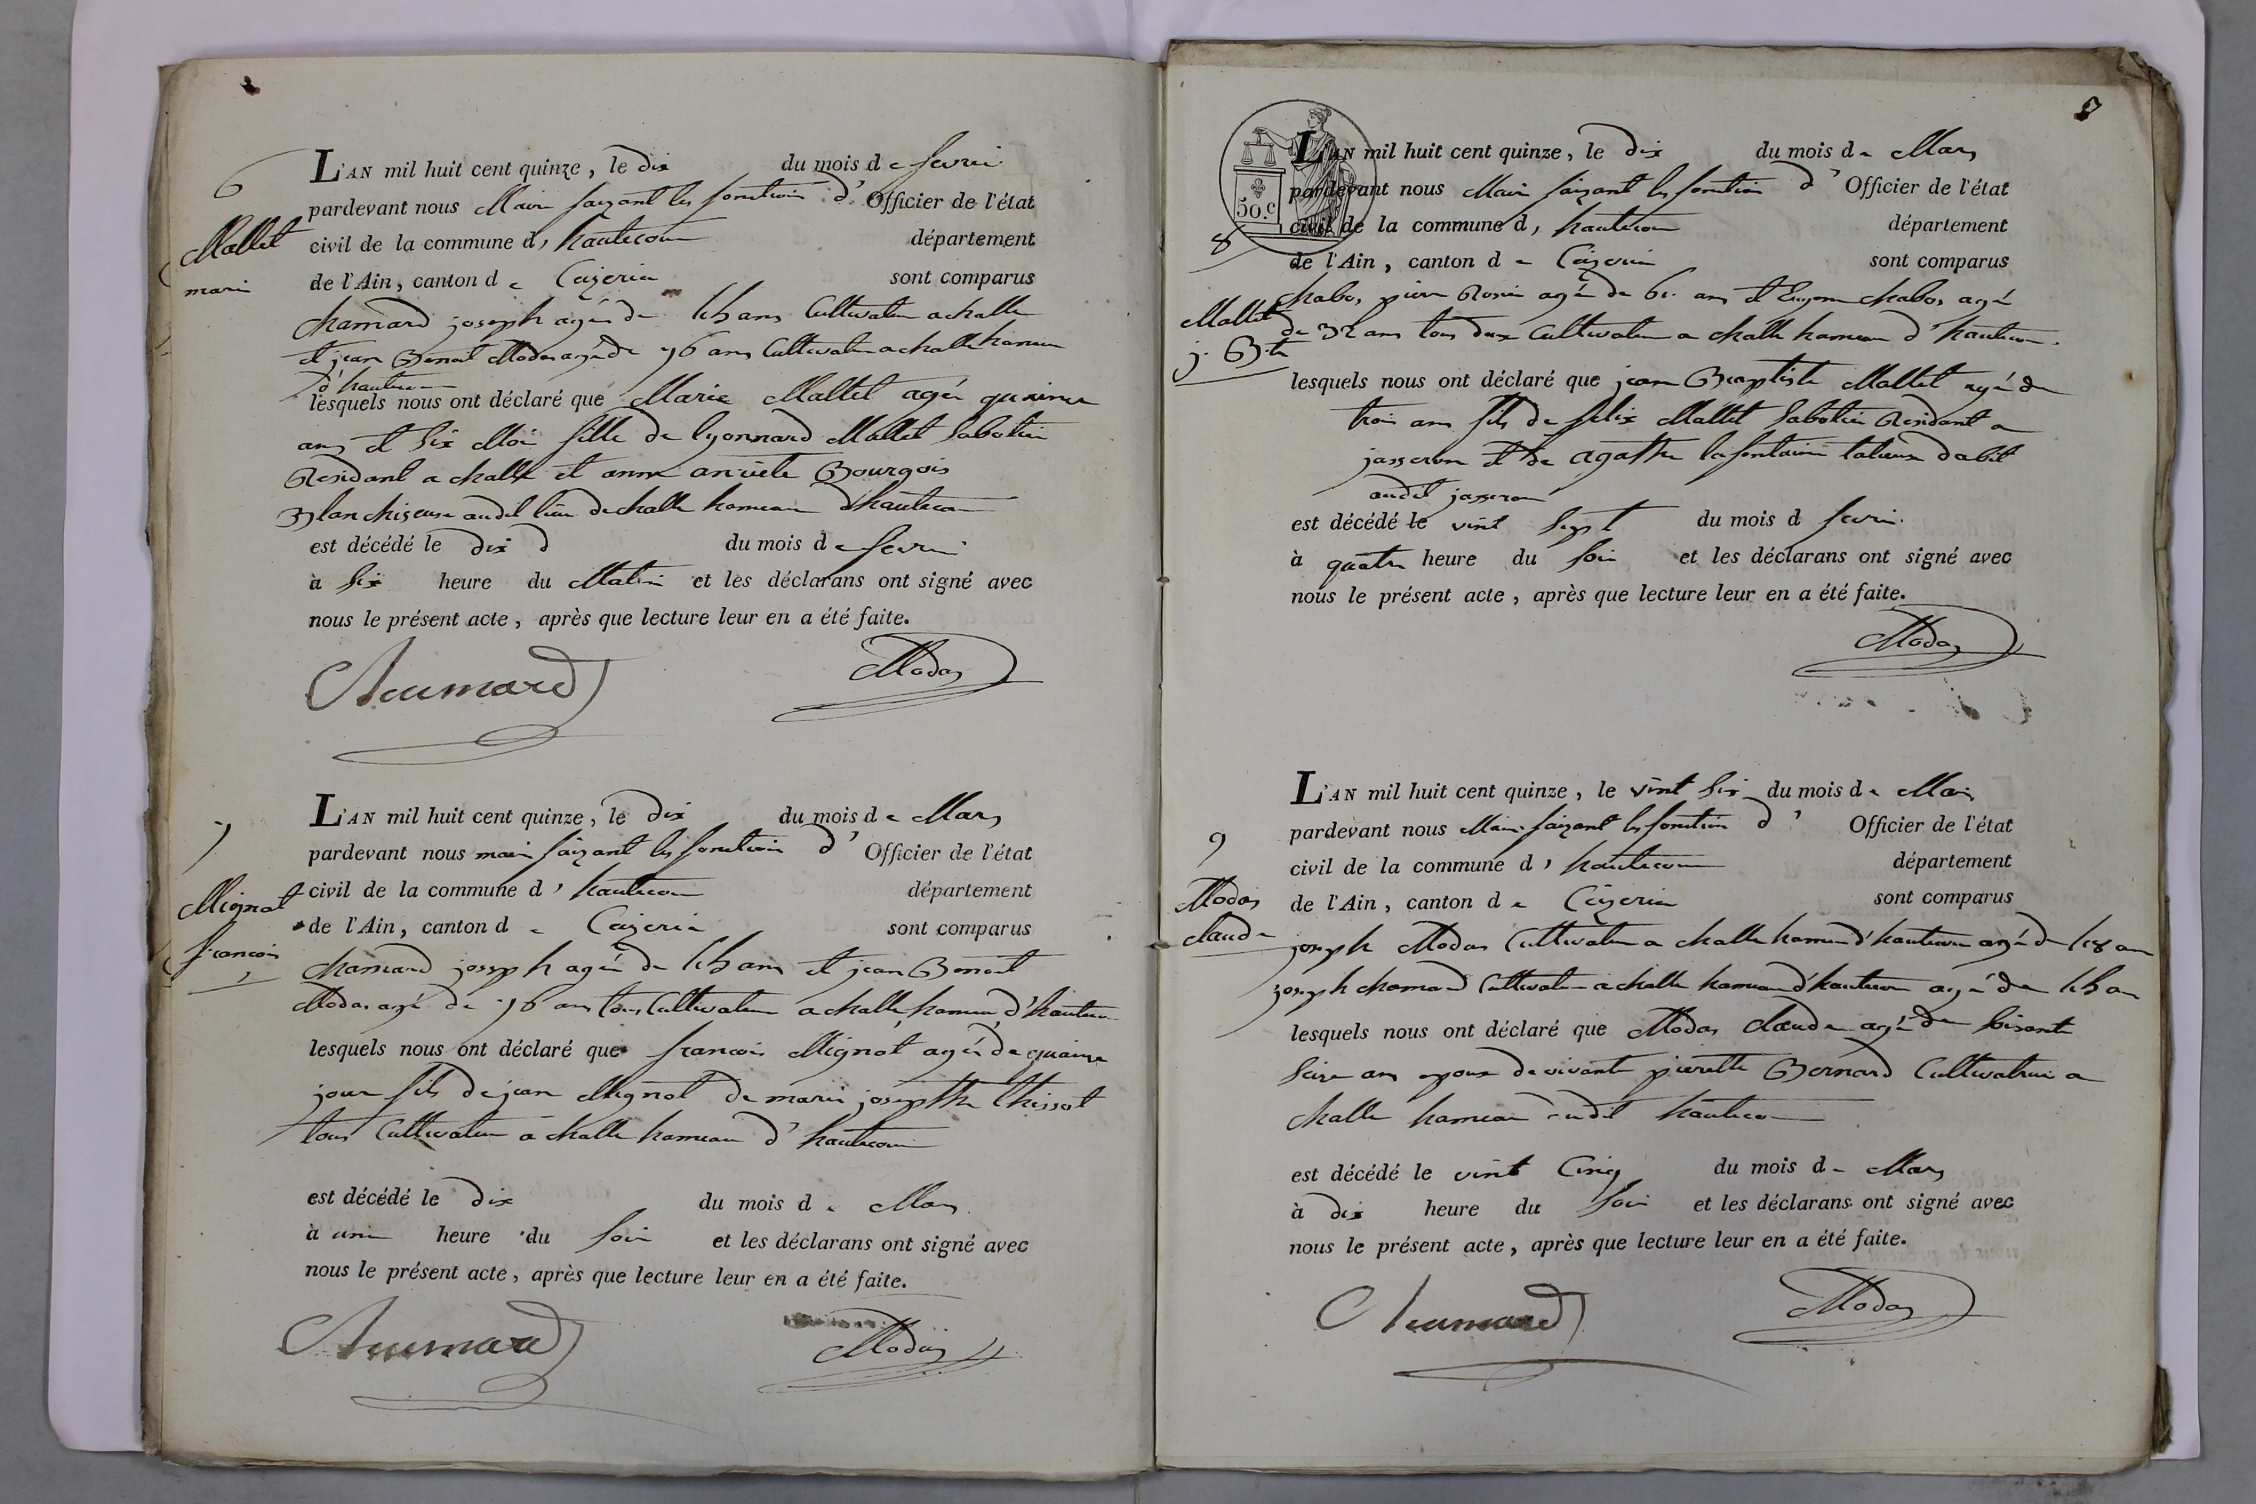 6
Mallet
marie
L'AN mil huit cent quinze, le dix du mois de fevrié
pardevant nous Maire faizant les fonction d' Officier de l'état
civil de la commune d, hautecour département
de l'Ain, canton de Ceizeria sont comparus
chamard joseph agée de 45 ans Cultivateur a challe
et jean Benoit Modas agé de 76 ans Cultivateur a challe hameau
d'hautecour
lesquels nous ont déclaré que Marie Mallet agée quainze
ans et six Moi fille de lyonnard Mallet Sabotié
Residant a challe et anne anriete Bourgois
Blanchiseuse audit lieu de challe hameau d'hautecour
est décédé le dix d du mois de fevrié
à six heure du Matin et les déclarans ont signé avec
nous le présent acte, après que lecture leur en a été faite.
Chamard Modas
7
Mignot
francois
L'AN mil huit cent quinze, le dix du mois de Mars
pardevant nous maire faizant les fonction d' Officier de l'état
civil de la commune d' hautecour département
de l'Ain, canton de Ceizeria sont comparus
chamard joseph agée de 45 ans et jean Benoit
Modas agé de 76 ans tous Cultivateur a challe, hameau, d'hautecour
lesquels nous ont déclaré que francois Mignot agée de quainze
jour fils de jean Mignot de marie josephthe Chissot
tous Cultivateur a challe hameau d' hautecour
est décédé le dix du mois de Mars
à une heure du soir et les déclarans ont signé avec
nous le présent acte, après que lecture leur en a été faite.
Chamard Modas
8
Mallet
j. Bte
50.c
L'AN mil huit cent quinze, le dix du mois de Mars
pardevant nous Maire faizant les fonction d' Officier de l'état
civil de la commune d, hautecour département
de l'Ain, canton de Ceizeria sont comparus
chabos piere agée de 61 ans et chabos agé
de 32 ans tous deux Cultivateur a challe hameau d'hautecour.
lesquels nous ont déclaré que jean Baptiste Mallet agée de
trois ans fils de felix Mallet Sabotié Residant a
jasseron et de agathe lafontaine talieuse dabit
audit jasseron
est décédé le vint sept du mois d fevrié
à quatre heure du soir et les déclarans ont signé avec
nous le présent acte, après que lecture leur en a été faite.
Modas
9
Modas
claude
L'AN mil huit cent quinze, le vint six du mois de Mars
pardevant nous Maire faizant les fonction d' Officier de l'état
civil de la commune d' hautecour département
de l'Ain, canton de Ceizeria sont comparus
joseph Modas Cultivateur a challe hameau d'hautecour agée de 48 ans
joseph chamard Cultivateur a challe hameau d'hautecour agée de 45 ans
lesquels nous ont déclaré que Modas claude agée de soisante
seize ans epoux de vivante pierette Bernard Cultivatrice a
challe hameau dudit hautecour
est décédé le vint Cinq du mois de Mars
à dix heure du soir et les déclarans ont signé avec
nous le présent acte, après que lecture leur en a été faite.
Chamard Modas